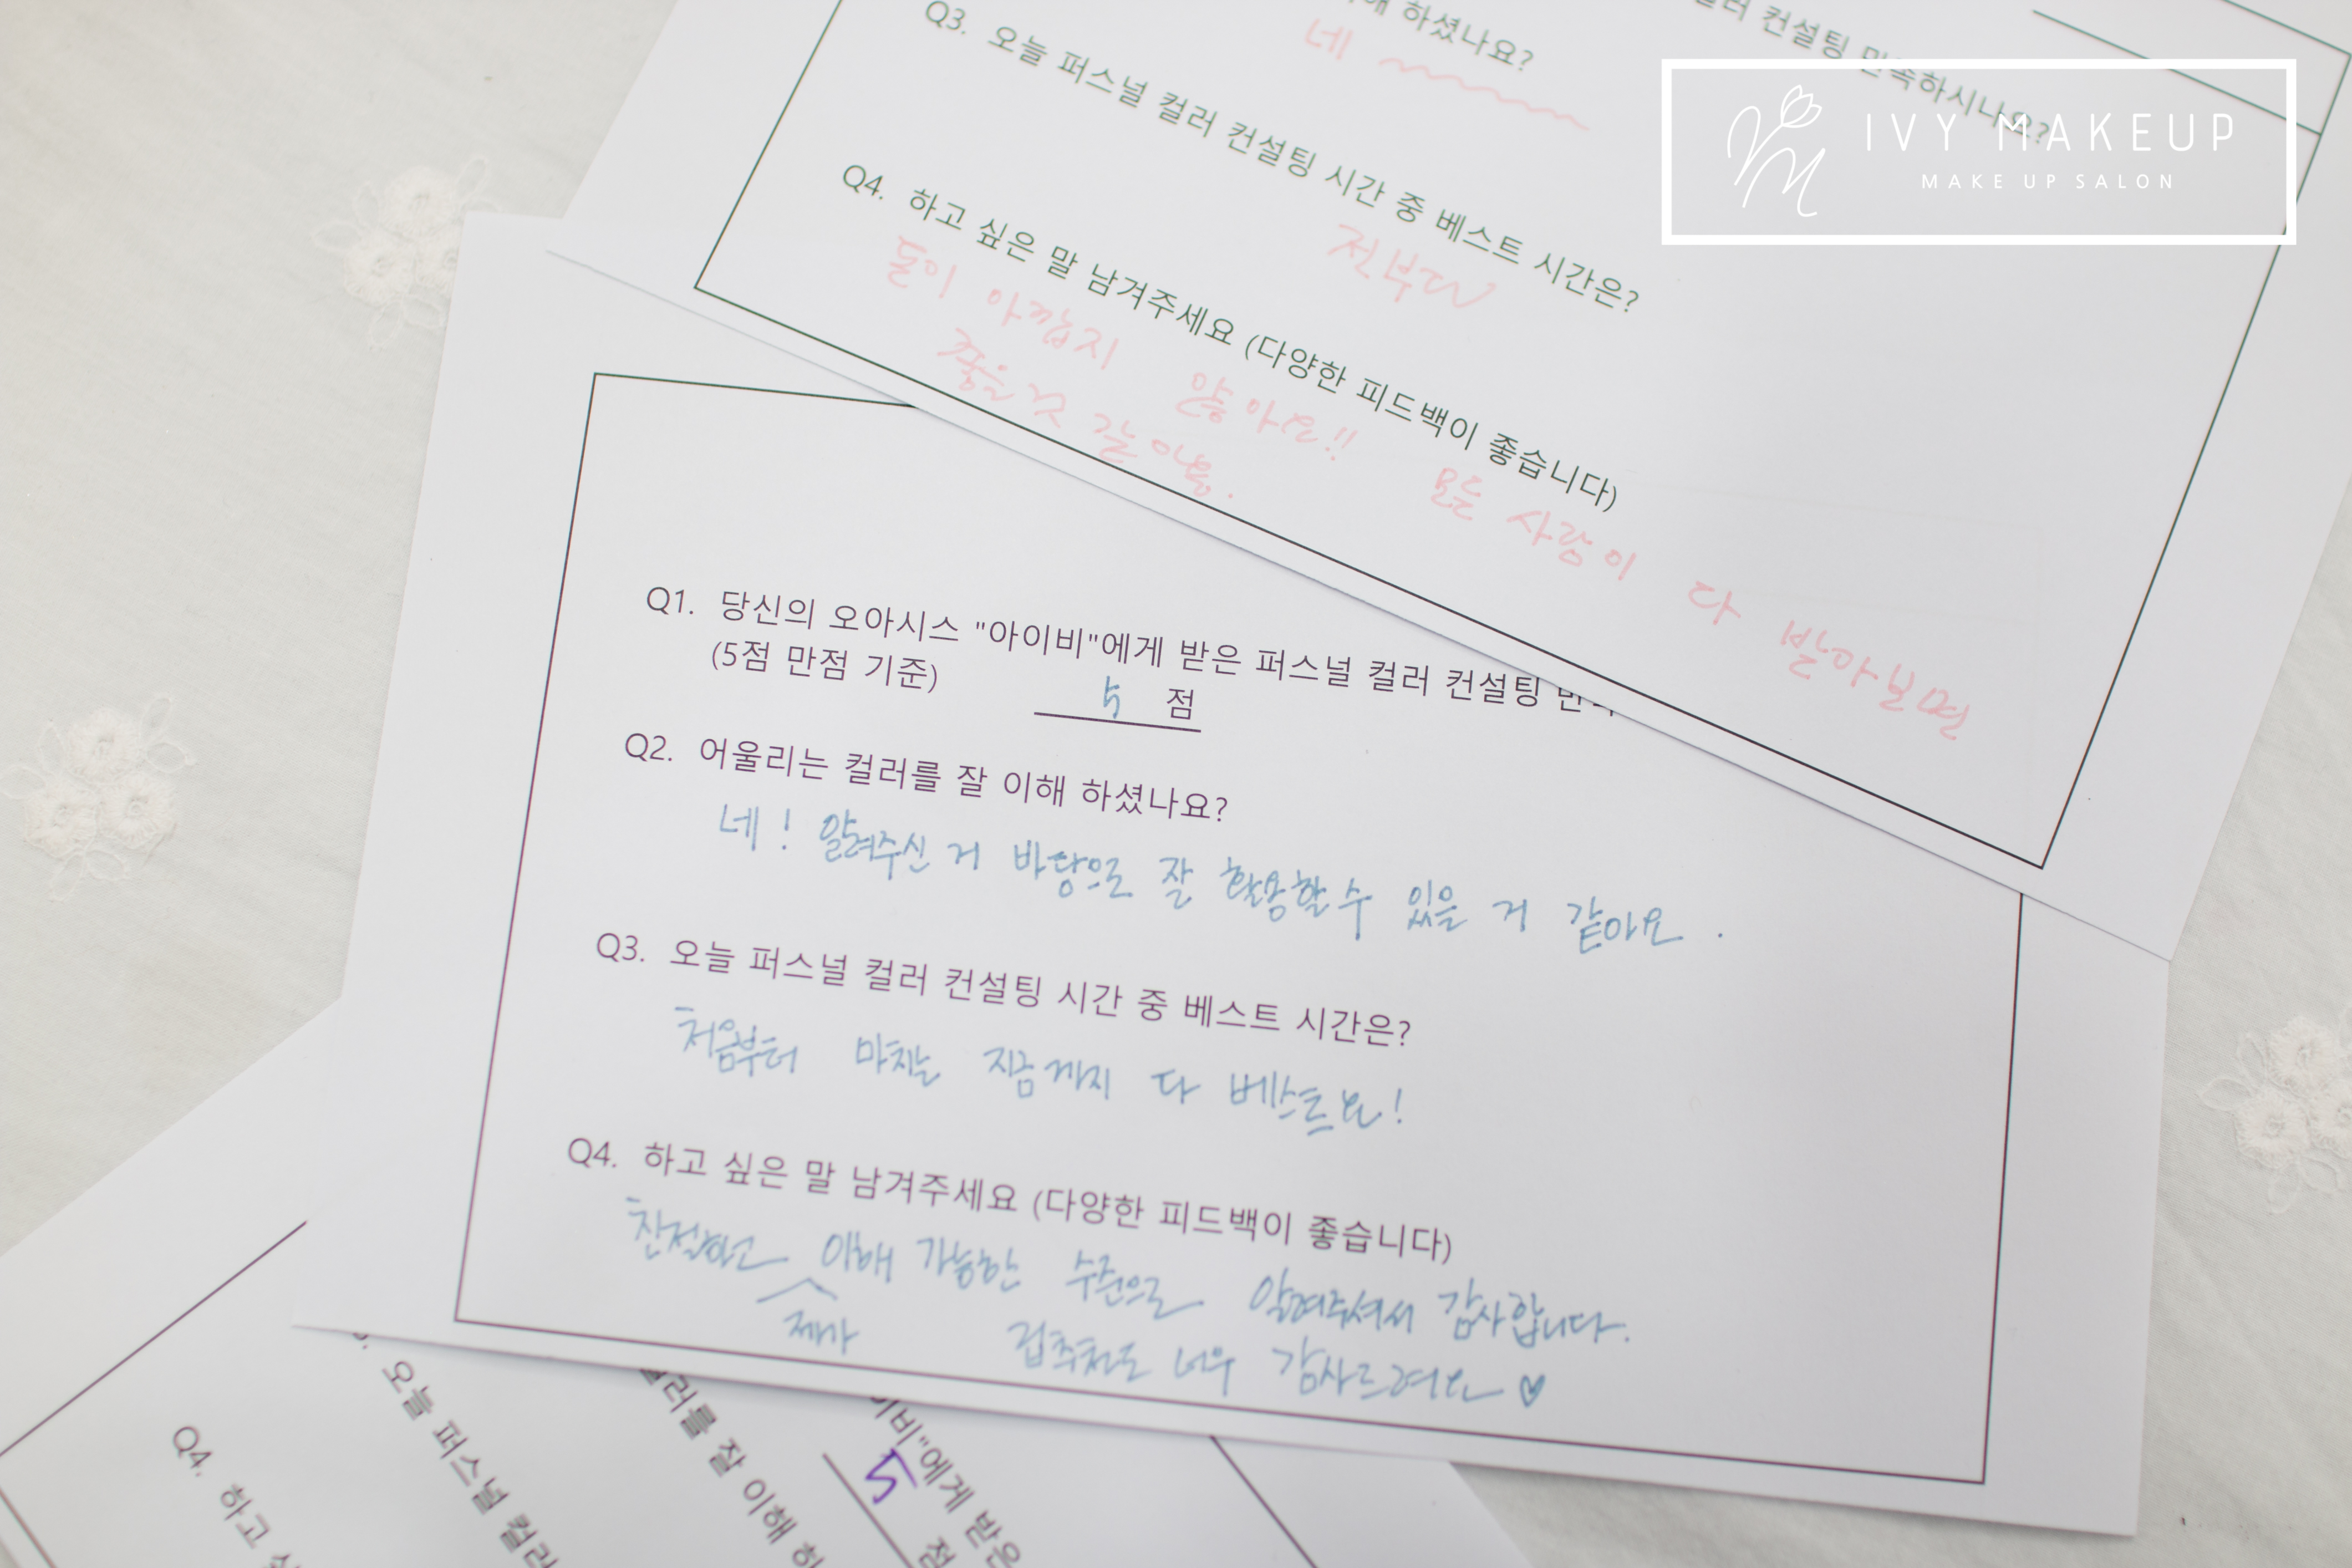 해 하셨나요?
네
Q3. 오늘 퍼스널 컬러 컨설팅 시간 중 베스트 시간은?
전부다
Q4. 하고 싶은 말 남겨주세요 (다양한 피드백이 좋습니다)
돈이 아깝지 않아요!! 모든 사람이 다 받아보면
좋을것 같아용.
컨설팅 만족하시나요?
IVY MAKEUP
MAKE UP SALON
Q1. 당신의 오아시스 "아이비"에게 받은 퍼스널 컬러 컨설팅
(5점 만점 기준) 5 점
Q2. 어울리는 컬러를 잘 이해 하셨나요?
네! 알려주신 거 바탕으로 잘 활용할 수 있을 거 같아요.
Q3. 오늘 퍼스널 컬러 컨설팅 시간 중 베스트 시간은?
처음부터 마치는 지금까지 다 베스트요!
Q4. 하고 싶은 말 남겨주세요 (다양한 피드백이 좋습니다)
친절하고 제가 이해 가능한 수준으로 알려주셔서 감사합니다.
립추천도 너무 감사드려요♡
이비"에게 받은
5 점
컬러를 잘 이해 하
오늘 퍼스널 컬러
Q4. 하고 싶